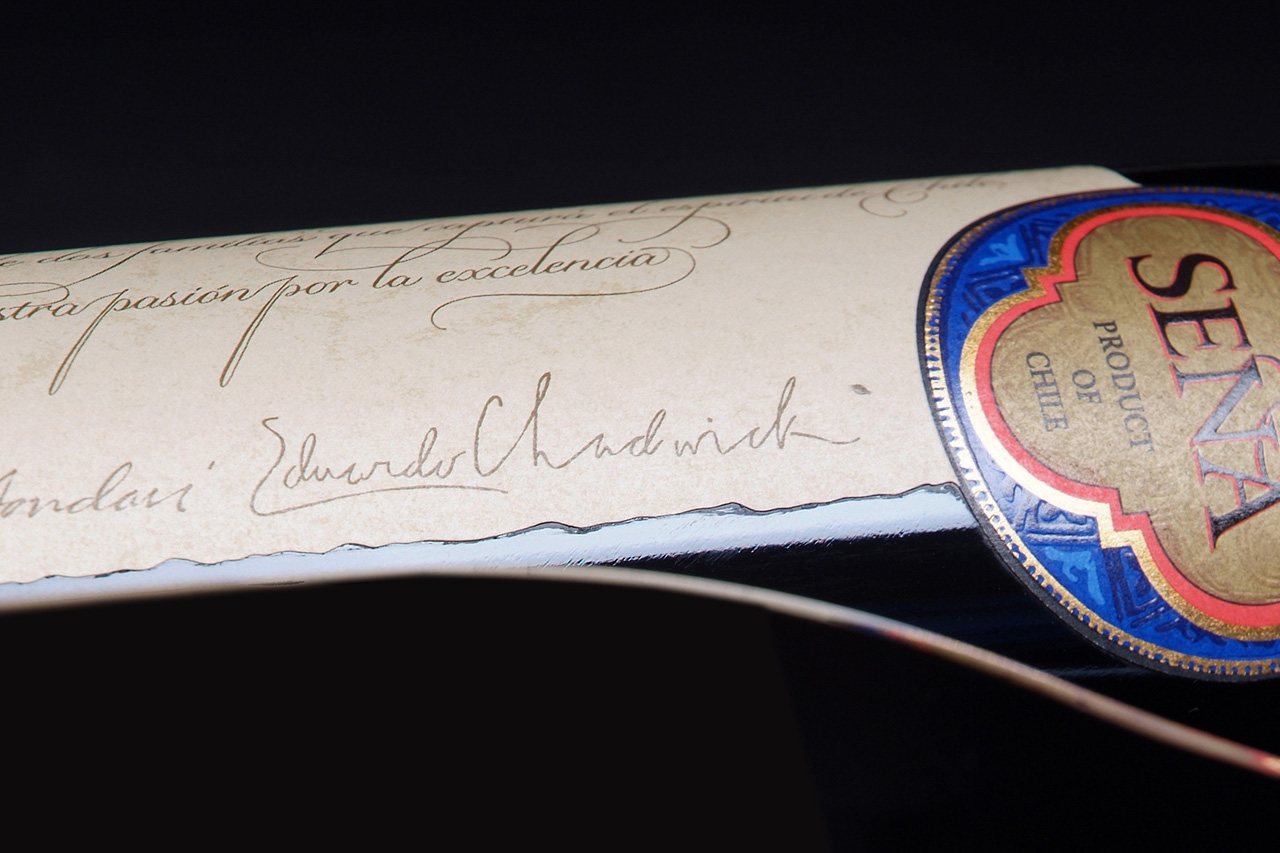 dos familias que captura el espíritu de Chile,
stra pasión por la excelencia
ondavi Eduardo Chadwick
SEÑA
PRODUCT
OF
CHILE